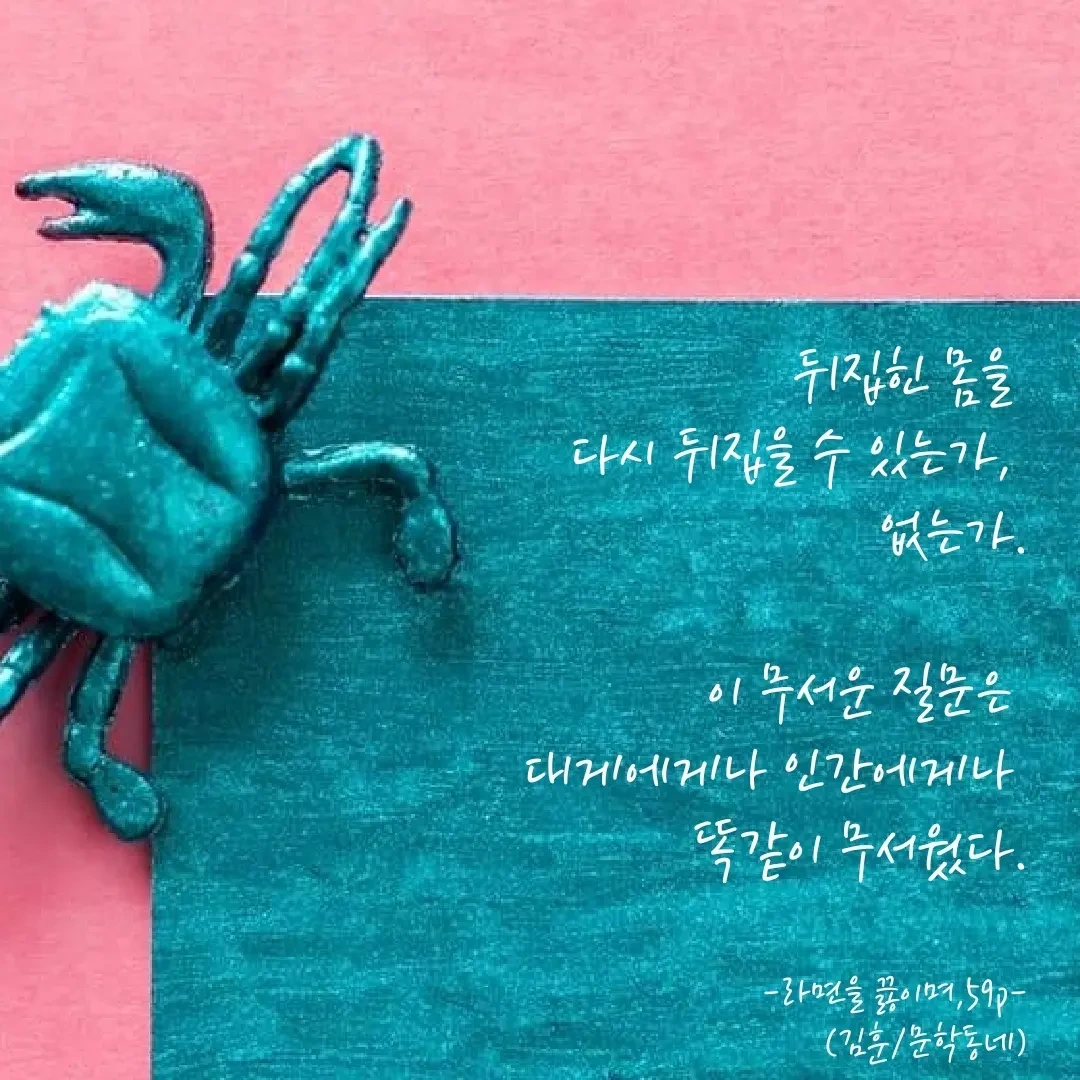 뒤집힌 몸을
다시 뒤집을 수 있는가,
없는가.
이 무서운 질문은
대게에게나 인간에게나
똑같이 무서웠다.
-라면을 끓이며,59p-
(김훈/문학동네)